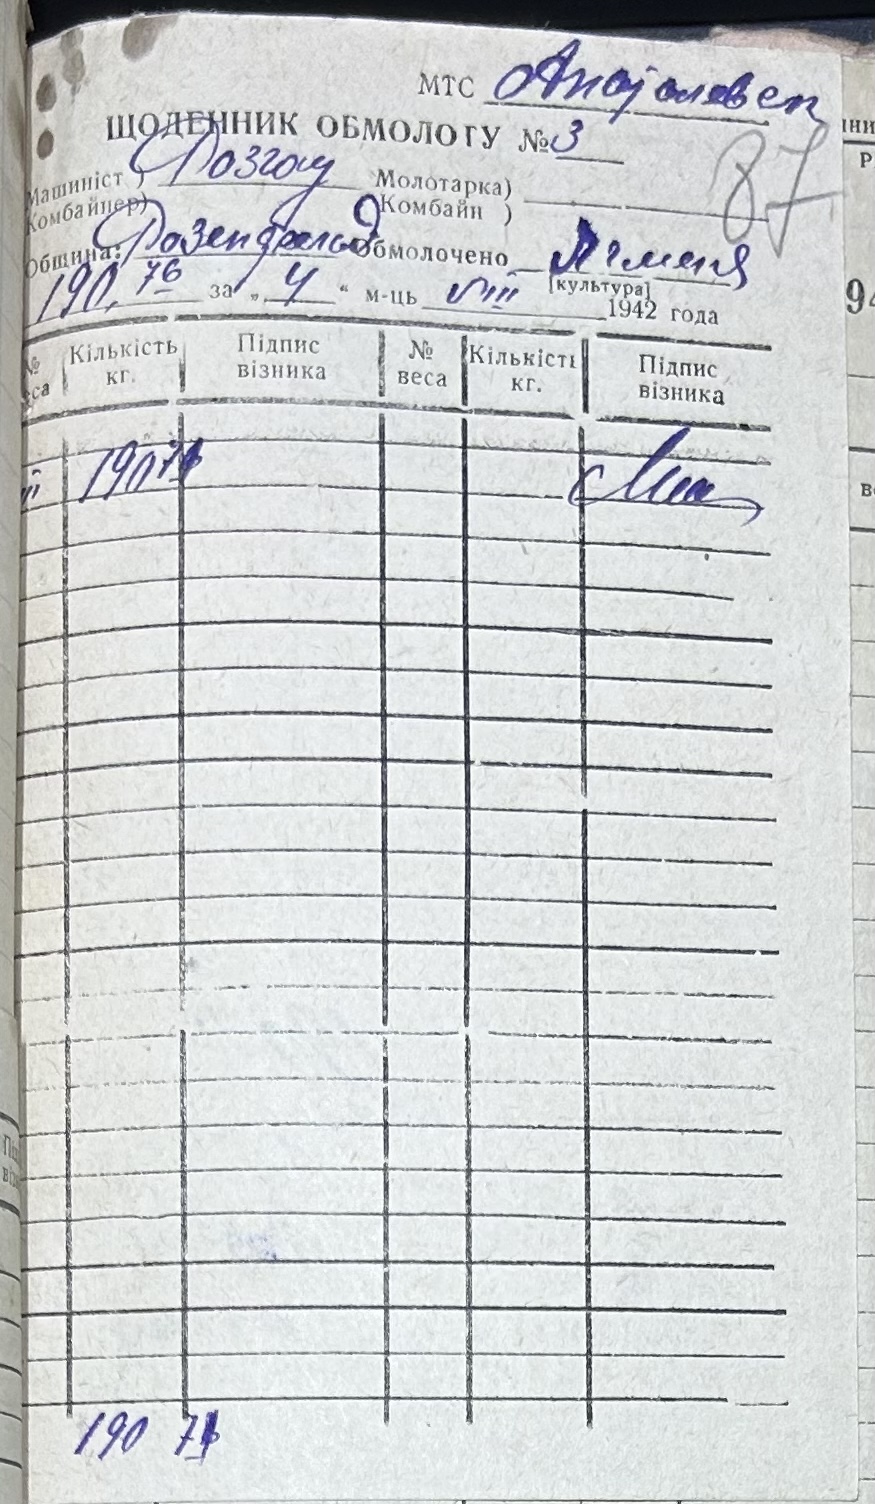 МТС
ЩОДЕННИК ОБМОЛОТУ №3
87
Машиніст ) Молотарка)
Комбайнер) Комбайн )
Община: Розенфельд Обмолочено Ячменя
[культура]
190,76 за „4“ м-ць VIII 1942 года
№ веса Кількість кг. Підпис візника № веса Кількість кг. Підпис візника
190 76
190 76